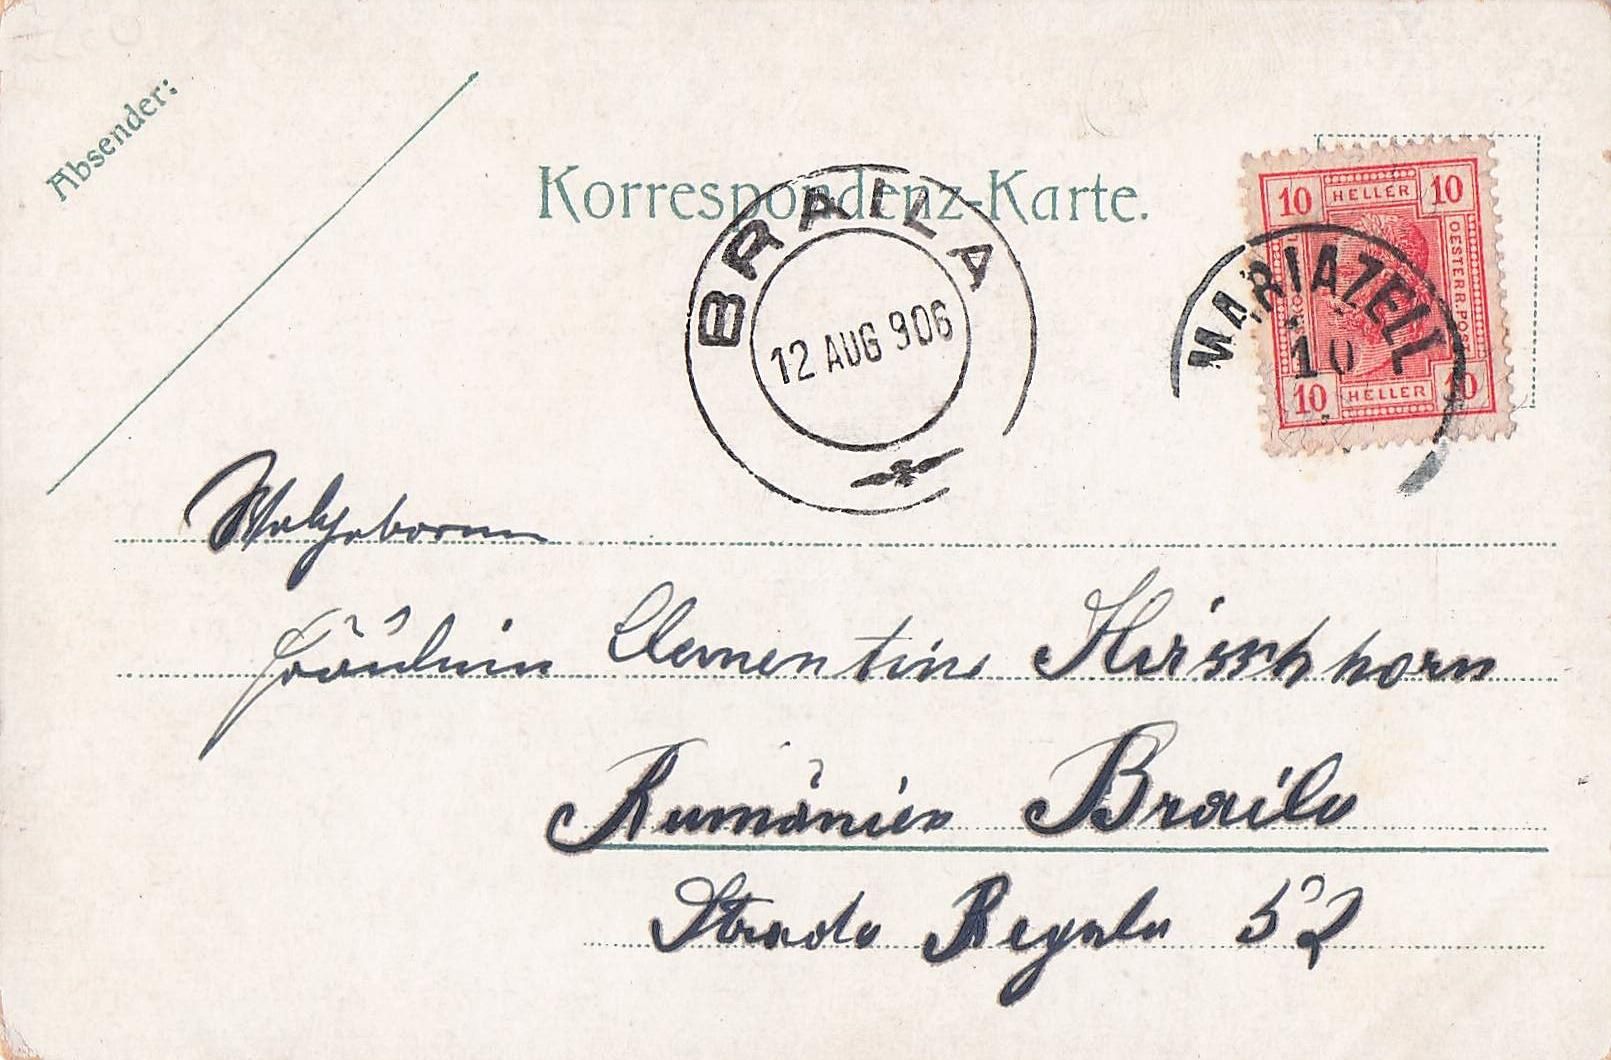 Absender:
Korrespondenz-Karte.
BRAILA
12 AUG 906
10 HELLER 10
OESTERR. POST
MARIAZELL
10
10 HELLER 10
Wolgeboren
Fräulein Clementine Hirschhorn
Rumänien Braila
Strada Regala 52